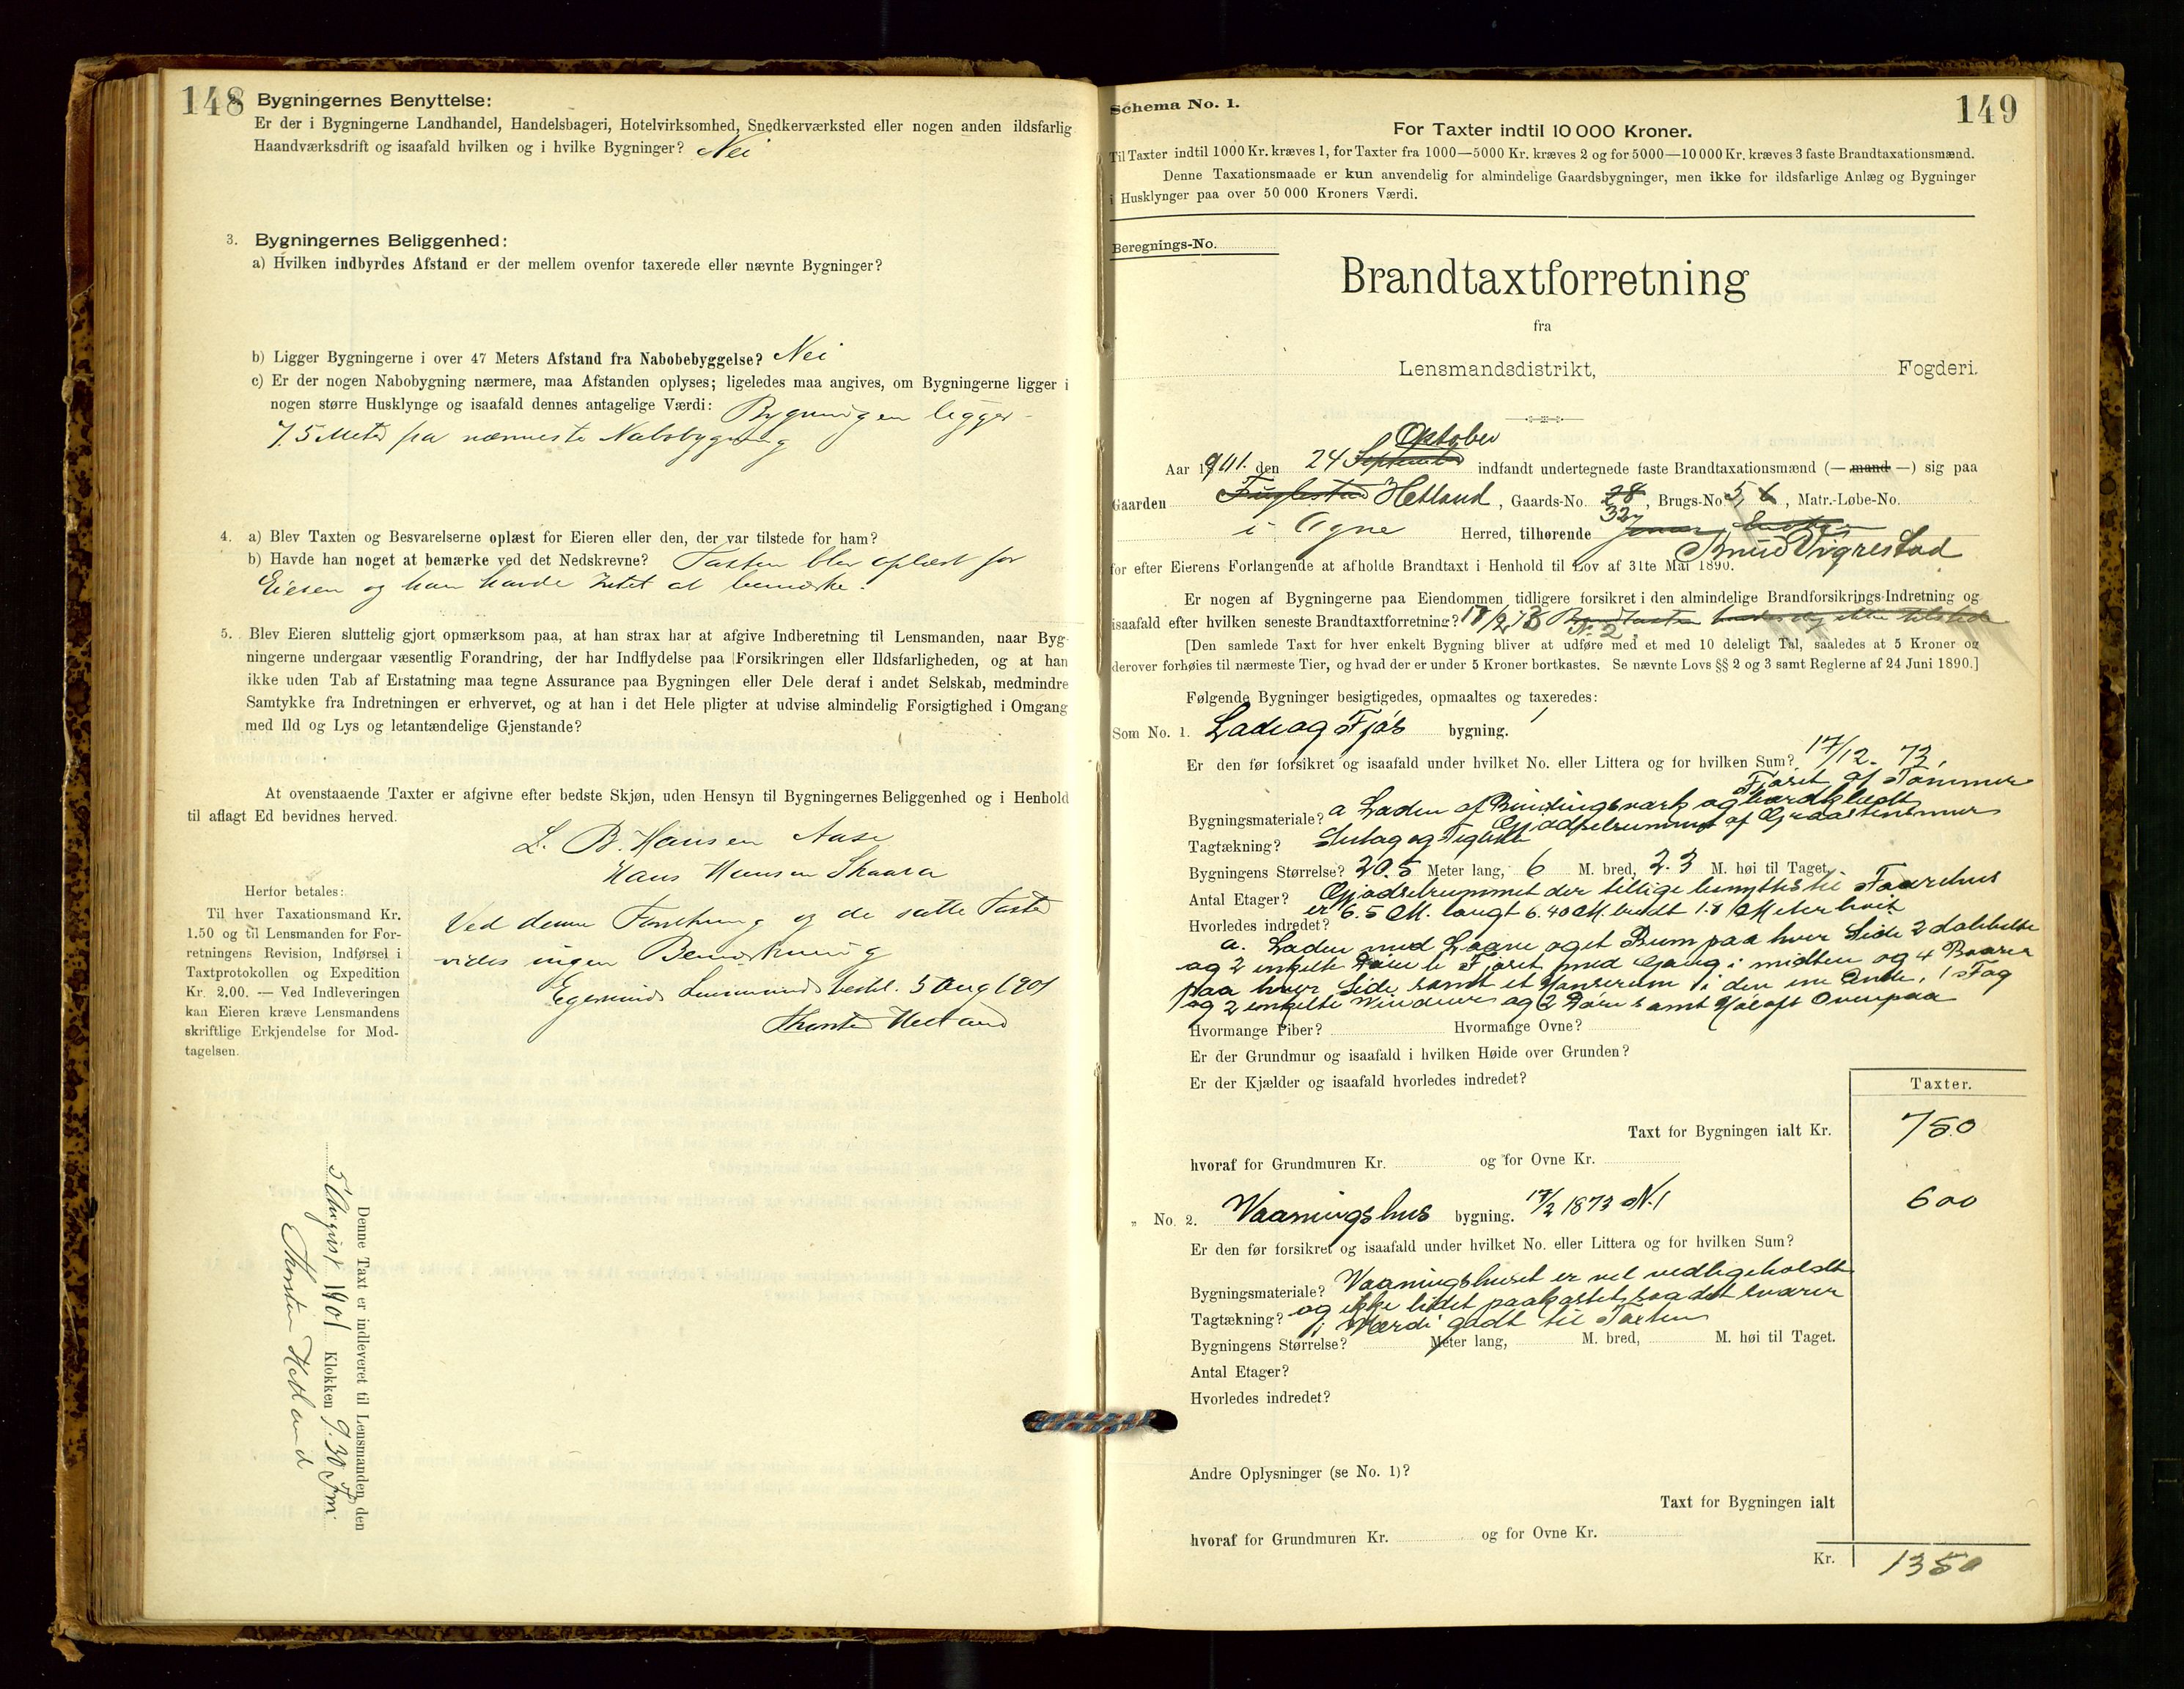 148
Bygningernes Benyttelse:
Er der i Bygningerne Landhandel, Handelsbageri, Hotelvirksomhed, Snedkerværksted eller nogen anden ildsfarlig
Haandværksdrift og isaafald hvilken og i hvilke Bygninger? Nei
3. Bygningernes Beliggenhed:
a) Hvilken indbyrdes Afstand er der mellem ovenfor taxerede eller nævnte Bygninger?
b) Ligger Bygningerne i over 47 Meters Afstand fra Nabobebyggelse? Nei
c) Er der nogen Nabobygning nærmere, maa Afstanden oplyses; ligeledes maa angives, om Bygningerne ligger i
nogen større Husklynge og isaafald dennes antagelige Værdi: Bygningen ligger
7.5 Meter fra nærmeste Nabobygning
4. a) Blev Taxten og Besvarelserne oplæst for Eieren eller den, der var tilstede for ham?
b) Havde han noget at bemærke ved det Nedskrevne? Taxten blev oplæst for
Eieren og han havde Intet at bemærke.
5. Blev Eieren sluttelig gjort opmærksom paa, at han strax har at afgive Indberetning til Lensmanden, naar Byg-
ningerne undergaar væsentlig Forandring, der har Indflydelse paa Forsikringen eller Ildsfarligheden, og at han
ikke uden Tab af Erstatning maa tegne Assurance paa Bygningen eller Dele deraf i andet Selskab, medmindre
Samtykke fra Indretningen er erhvervet, og at han i det Hele pligter at udvise almindelig Forsigtighed i Omgang
med Ild og Lys og letantændelige Gjenstande?
At ovenstaaende Taxter er afgivne efter bedste Skjøn, uden Hensyn til Bygningernes Beliggenhed og i Henhold
til aflagt Ed bevidnes herved.
L. B. Hansen Aase
Hans Hansen Skaara
Herfor betales:
Til hver Taxationsmand Kr.
1.50 og til Lensmanden for For-
retningens Revision, Indførsel i
Taxtprotokollen og Expedition
Kr. 2.00. — Ved Indleveringen
kan Eieren kræve Lensmandens
skriftlige Erkjendelse for Mod-
tagelsen.
Ved denne Forretning og de satte Taxter
vides ingen Bemærkning
Egersunds Lensmandsbestil. 5 Aug 1901
Thorsten Hetland
Denne Taxt er indleveret til Lensmanden den
5 August 1901 Klokken 9.30 Fm
Thorsten Hetland
Schema No. 1.
149
For Taxter indtil 10 000 Kroner.
Til Taxter indtil 1000 Kr. kræves 1, for Taxter fra 1000—5000 Kr. kræves 2 og for 5000—10 000 Kr. kræves 3 faste Brandtaxationsmænd.
Denne Taxationsmaade er kun anvendelig for almindelige Gaardsbygninger, men ikke for ildsfarlige Anlæg og Bygninger
i Husklynger paa over 50 000 Kroners Værdi.
Beregnings-No.
Brandtaxtforretning
fra
Lensmandsdistrikt, Fogderi.
Oktober
Aar 1901. den 24 September indfandt undertegnede faste Brandtaxationsmænd (— mand —) sig paa
Gaarden Fuglestad Hetland, Gaards-No. 28, Brugs-No 5, 6, Matr.-Løbe-No.
32
i Ogne Herred, tilhørende
Knud Vigrestad
for efter Eierens Forlangende at afholde Brandtaxt i Henhold til Lov af 31te Mai 1890.
Er nogen af Bygningerne paa Eiendommen tidligere forsikret i den almindelige Brandforsikrings-Indretning og
isaafald efter hvilken seneste Brandtaxtforretning? 17/2 73 Brandtaxten ikke tilstede
No. 2
[Den samlede Taxt for hver enkelt Bygning bliver at udføre med et med 10 deleligt Tal, saaledes at 5 Kroner og
derover forhøies til nærmeste Tier, og hvad der er under 5 Kroner bortkastes. Se nævnte Lovs §§ 2 og 3 samt Reglerne af 24 Juni 1890.]
Følgende Bygninger besigtigedes, opmaaltes og taxeredes:
Som No. 1. Lade og Fjøs bygning.
Er den før forsikret og isaafald under hvilket No. eller Littera og for hvilken Sum? 17/12 73,
Fjøset af Tømmer
Bygningsmateriale? a Laden af Bindingsværk og bordklædt
Gjødselrummet af Graastensmur
Tagtækning? og Teglsten
Bygningens Størrelse? 20.5 Meter lang, 6 M. bred, 2.3 M. høi til Taget.
Antal Etager? Gjødselrummet der tillige benyttes til Faarehus
er 6.5 M. langt 6.40 M. bredt 1.8 Meter høit
Hvorledes indredet?
a. Laden med Laave og et Rum paa hver Side 2 dobbelte
og 2 enkelte Døre b Fjøset med Gang i midten og 4 Baaser
paa hver Side samt et Hønserum i den ene Ende, 1 Fag
og 2 enkelte Vinduer og 2 Døre samt Høloft Ovenpaa
Hvormange Piber? Hvormange Ovne?
Er der Grundmur og isaafald i hvilken Høide over Grunden?
Er der Kjælder og isaafald hvorledes indredet?
Taxter.
Taxt for Bygningen ialt Kr. 750
hvoraf for Grundmuren Kr. og for Ovne Kr.
„ No. 2. Vaaningshus bygning. 17/2 1873 N. 1 600
Er den før forsikret og isaafald under hvilket No. eller Littera og for hvilken Sum?
Bygningsmateriale? Vaaningshuset er vel vedligeholdt
Tagtækning? og ikke lidet paakostet, saa det svarer
i Værdi godt til Taxten
Bygningens Størrelse? Meter lang, M. bred, M. høi til Taget.
Antal Etager?
Hvorledes indredet?
Andre Oplysninger (se No. 1)?
Taxt for Bygningen ialt
hvoraf for Grundmuren Kr. og for Ovne Kr.
Kr. 1350